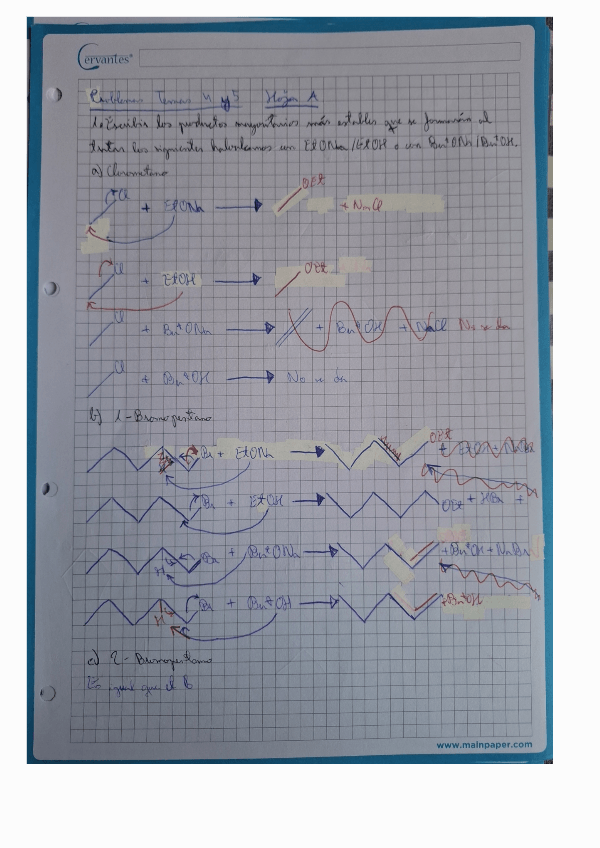 Cervantes
Problemas Temas 4 y 5 Hoja A
1. Escribir los productos mayoritarios más estables que se formarán al
tratar los siguientes haloalcanos con EtONa/EtOH o con ButONa/ButOH.
a) Clorometano
Cl + EtONa → OEt + NaCl
Cl + EtOH → OEt
Cl + ButONa → + ButOH + NaCl No se da
Cl + ButOH → No se da
b) 1-Bromopentano
Br + EtONa → OEt + EtOH + NaBr
Br + EtOH → OEt + HBr +
H Br + ButONa → + ButOH + NaBr
H Br + ButOH → + ButOH
c) 2-Bromopentano
Es igual que el B
www.mainpaper.com